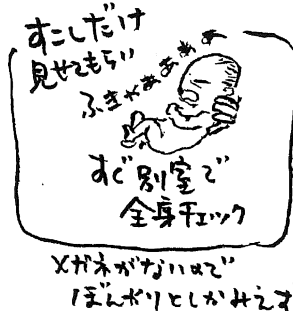 すこしだけ
見せてもらい
ふぎゃあぁあぁ
すぐ別室で
全身チェック
メガネがないので
ぼんやりとしかみえず